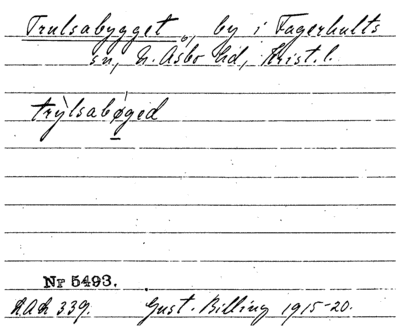 Trulsabygget, by i Fagerhults
sn, N. Åsbo hd, Krist. l.
trỳlsabøged
Nr 5493.
AOA 339. Gust. Billing 1915-20.